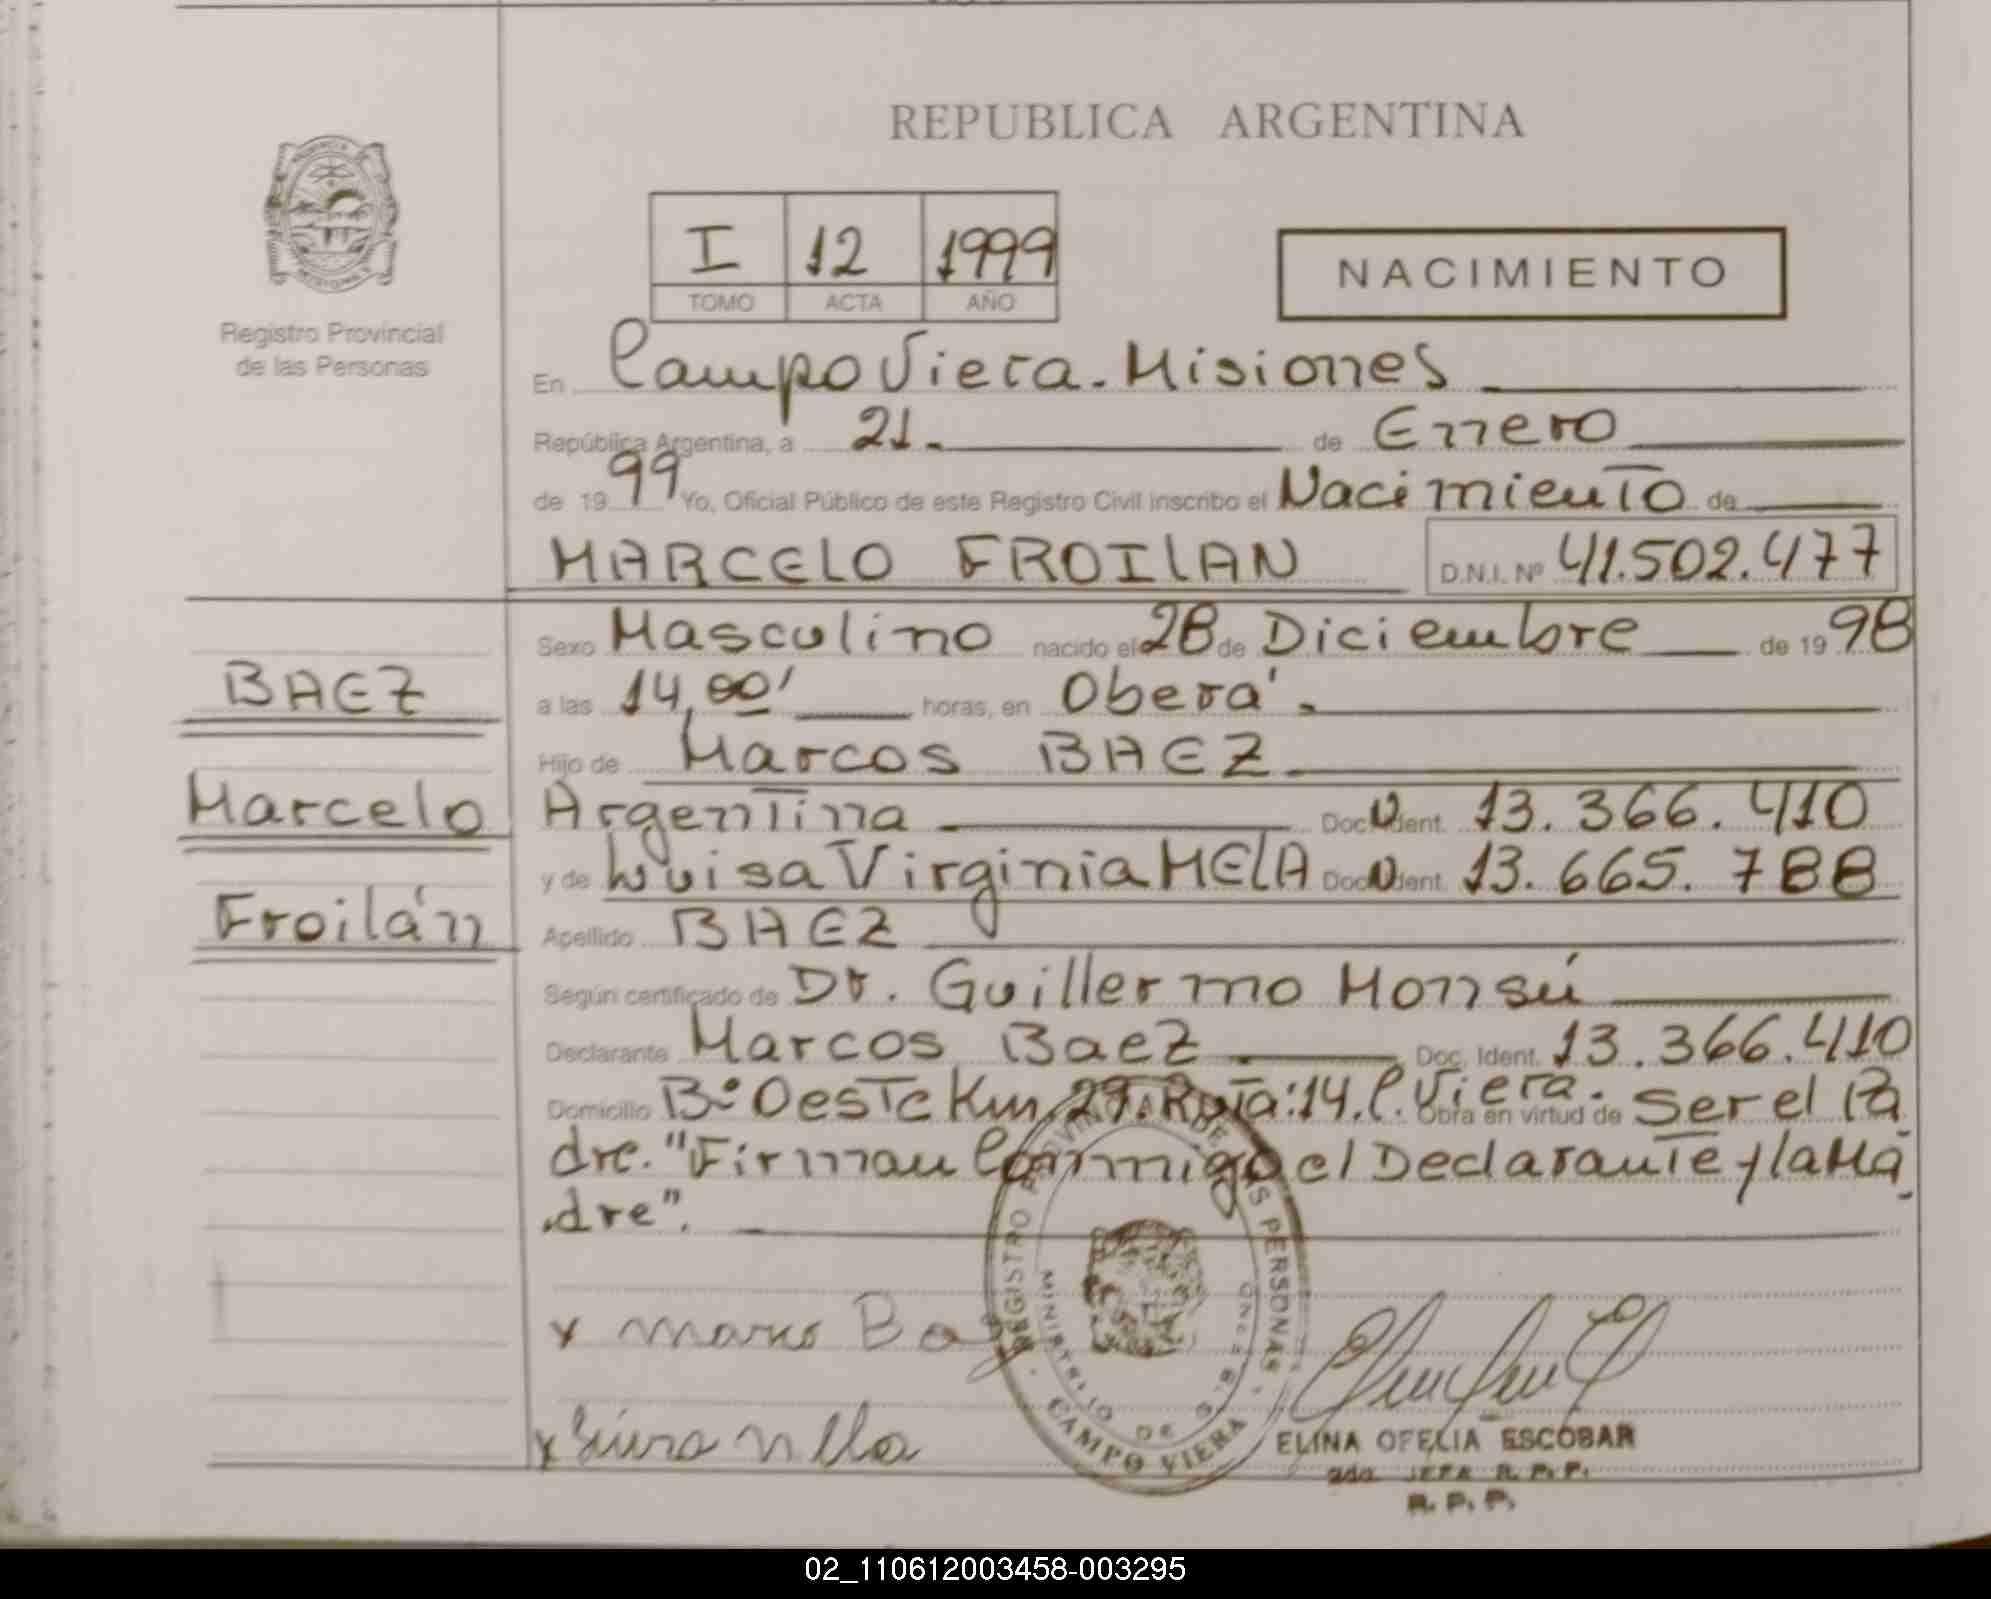 REPUBLICA ARGENTINA
I 12 1999
TOMO ACTA AÑO
NACIMIENTO
Registro Provincial
de las Personas
En Campo Viera - Misiones
República Argentina, a 21. de Enero
de 1999 Yo, Oficial Público de este Registro Civil inscribo el Nacimiento de
MARCELO FROILAN D.N.I. Nº 41.502.477
Sexo Masculino nacido el 28 de Diciembre de 1998
BAEZ
a las 14,00' horas, en Oberá.
Hijo de Marcos BAEZ
Marcelo
Argentina Doc. Ident. 13.366.410
y de Luisa Virginia MELA Doc. Ident. 13.665.788
Froilán
Apellido BAEZ
Según certificado de Dr. Guillermo Monsú
Declarante Marcos Baez Doc. Ident. 13.366.410
Domicilio Bº Oeste Km, 29. Ruta: 14. C. Viera. Obra en virtud de Ser el Pa
dre. "Firman Conmigo el Declarante y la Ma
dre".
x Marcos Baez
x
REGISTRO PROVINCIAL DE LAS PERSONAS
MINISTERIO DE GOB
CAMPO VIERA
ELINA OFELIA ESCOBAR
JEFA R. P. P.
R. P. P.
02_110612003458-003295